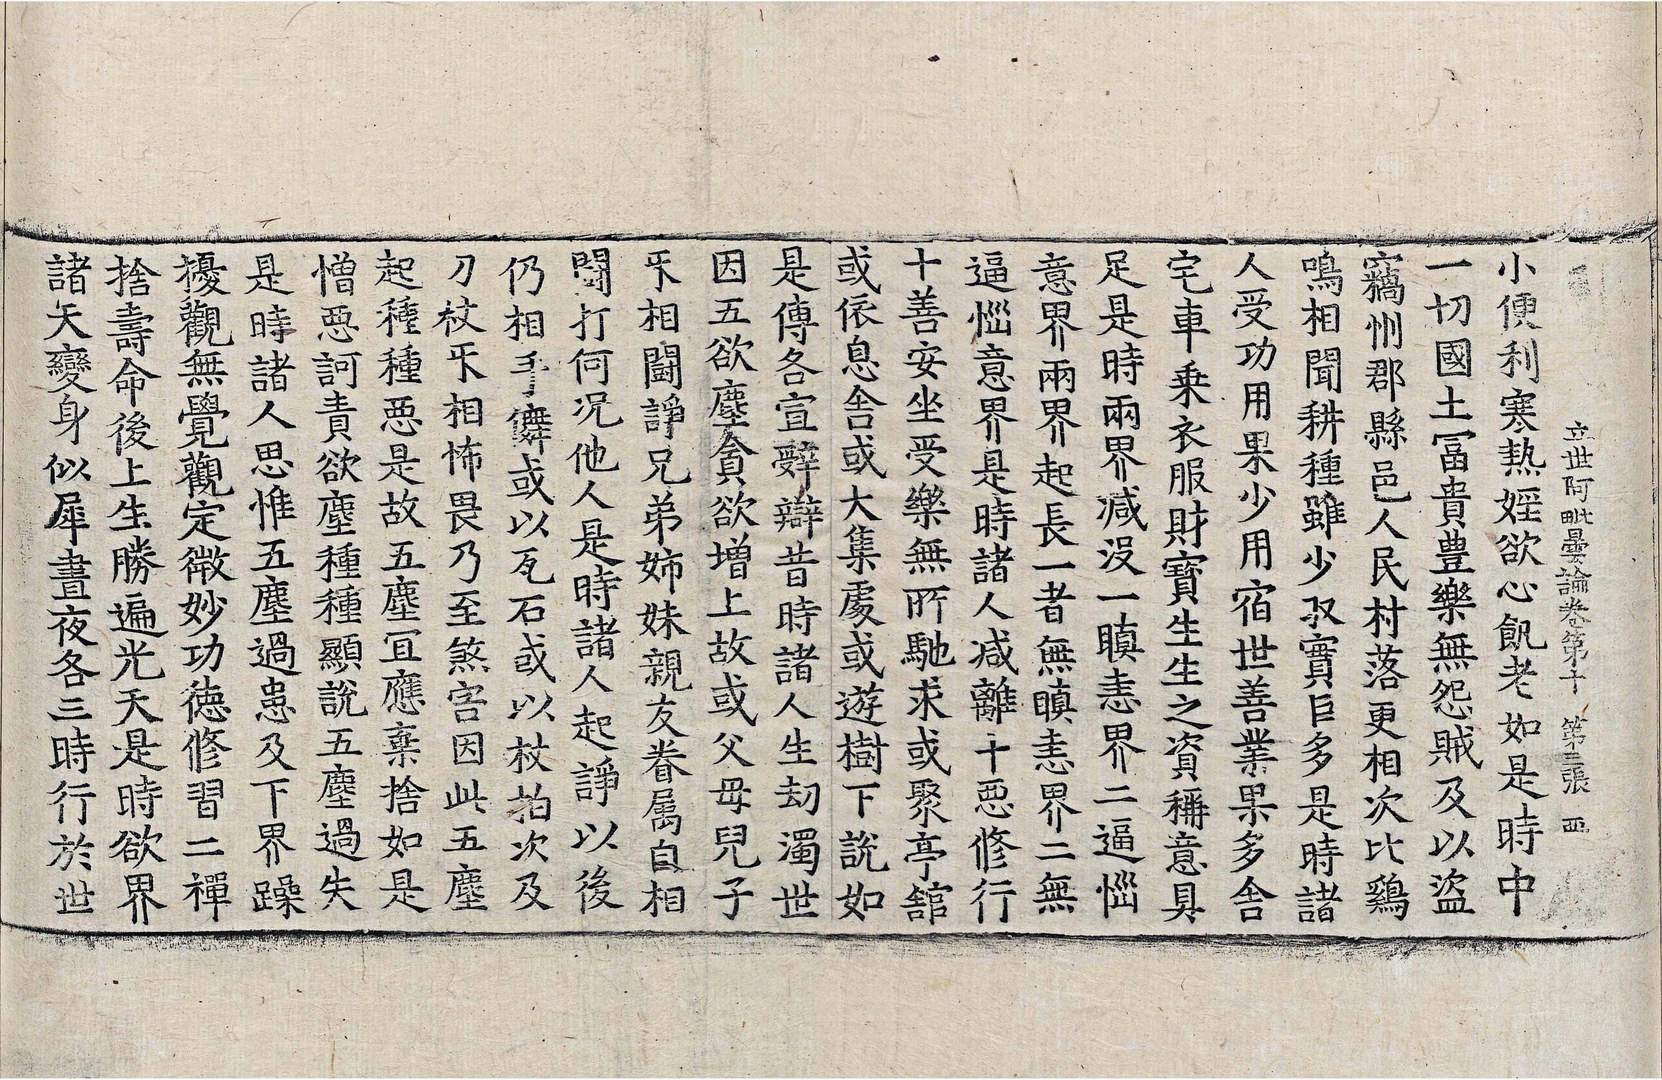 立世阿毗曇論卷第十　第三張　西
小便利寒熱婬欲心飢老如是時中
一切國土冨貴豊樂無怨賊及以盜
竊州郡縣邑人民村落更相次比鷄
鳴相聞耕種雖少収實巨多是時諸
人受功用果少用宿世善業果多舎
宅車乗衣服財寶生生之資稱意具
足是時兩界减没一瞋恚界二逼惱
意界兩界起長一者無瞋恚界二無
逼惱意界是時諸人减離十惡修行
十善安坐受樂無所馳求或聚亭舘
或依息舎或大集處或遊樹下說如
是傳各宣辭辯昔時諸人生劫濁世
因五欲塵貪欲增上故或父母兒子
互相鬪諍兄弟姉妹親友眷属自相
鬪打何况他人是時諸人起諍以後
仍相手儛或以瓦石或以杖拍次及
刀杖互相怖畏乃至煞害因此五塵
起種種惡是故五塵冝應棄捨如是
憎惡訶責欲塵種種顯說五塵過失
是時諸人思惟五塵過患及下界躁
擾觀無覺觀定微妙功德修習二禪
捨壽命後上生勝遍光天是時欲界
諸天變身似犀晝夜各三時行於世